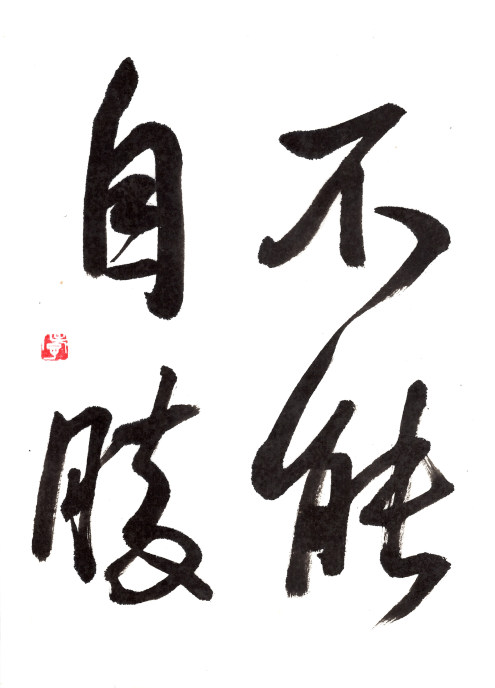 不能
自勝